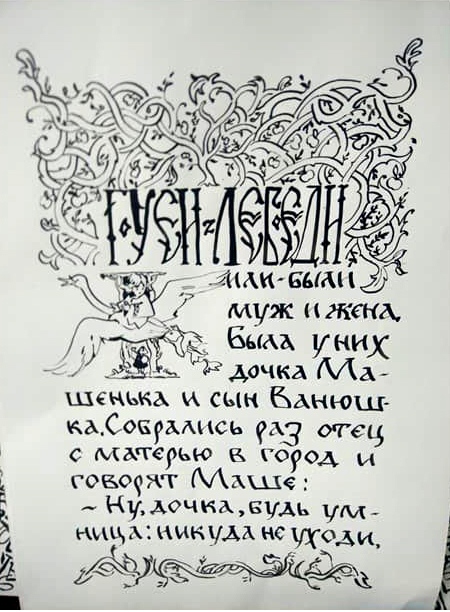 ГУСИ-ЛЕБЕДИ
Жили-были
муж и жена,
Была у них
дочка Ма-
шенька и сын Ванюш-
ка. Собрались раз отец
с матерью в город и
говорят Маше:
~ Ну, дочка, будь ум-
ница: никуда не уходи,